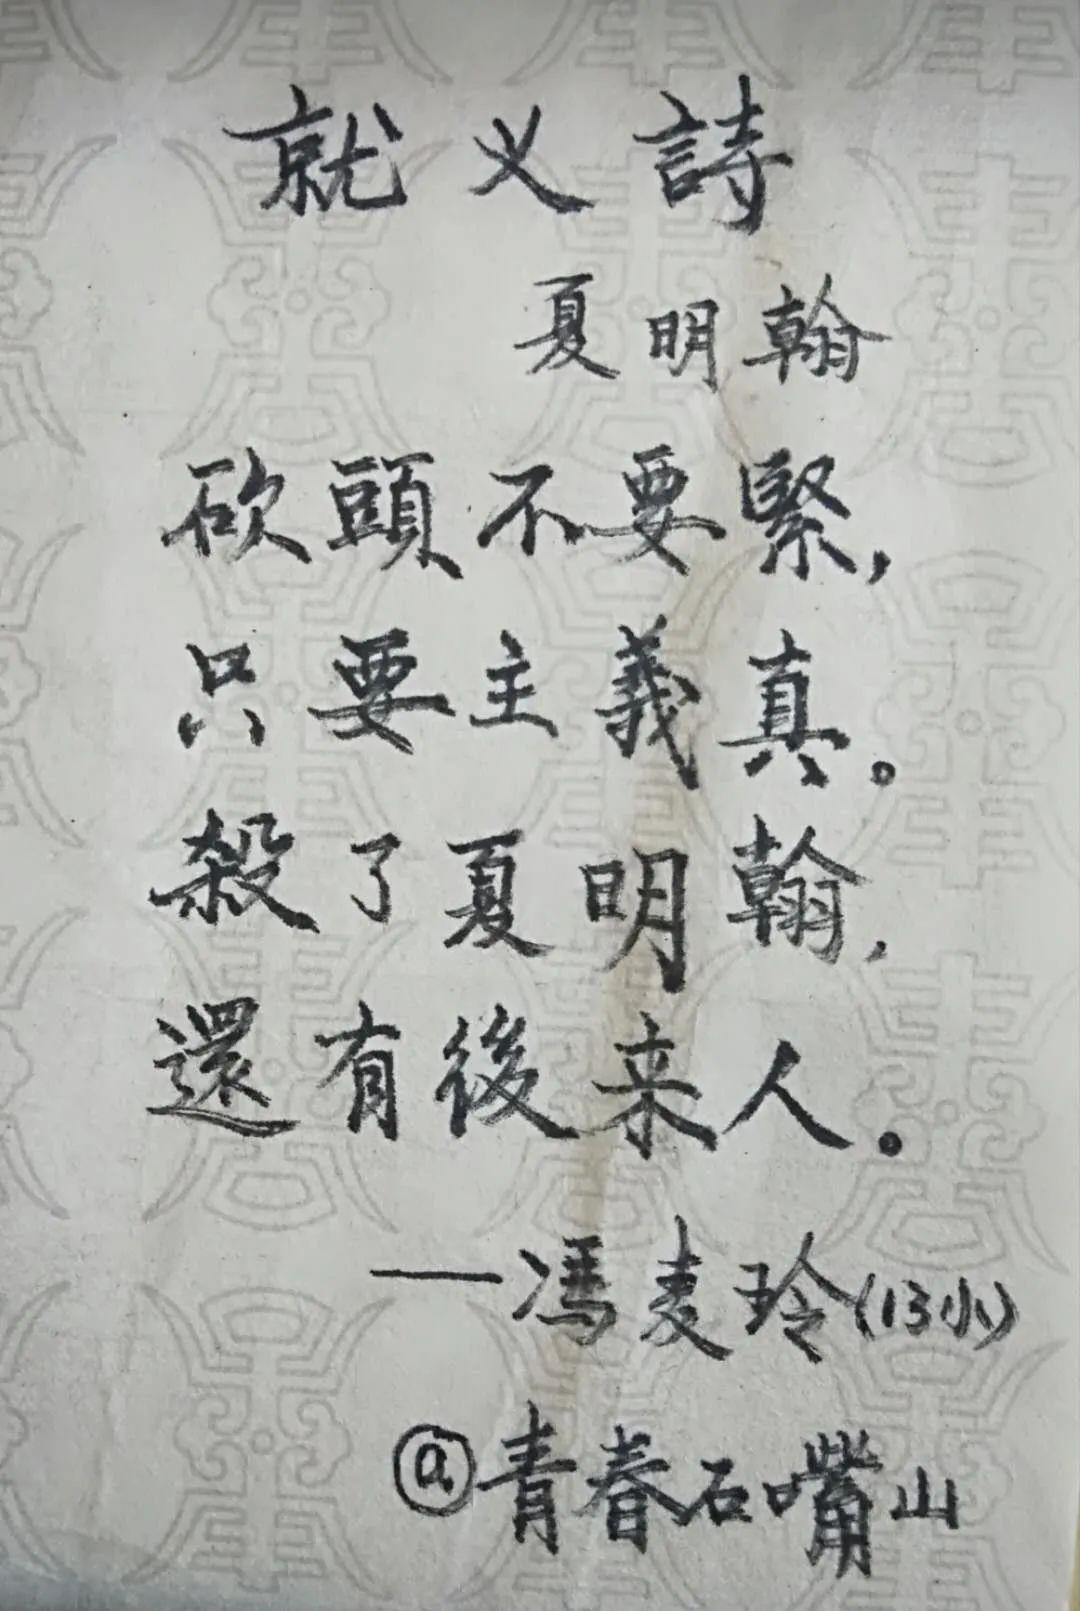 就义詩
夏明翰
砍頭不要緊,
只要主義真。
殺了夏明翰,
還有後来人。
—冯麦玲(13小)
@青春石嘴山